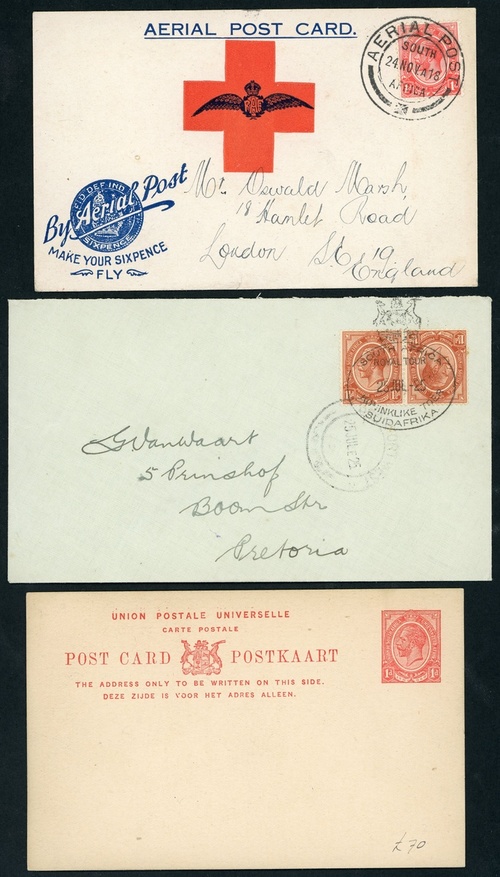 AERIAL POST CARD.
AERIAL POST
SOUTH
24.NOV.A18
AFRICA
1D
RAF
Mr. Oswald Marsh,
18 Hamlet Road
London SE. 19
England
DEF IND
By Aerial Post
SIXPENCE
MAKE YOUR SIXPENCE
FLY
SOUTH AFRICA
ROYAL TOUR
25 JUL-25
KONINKLIKE TOER
SUIDAFRIKA
25 JUL 25
G Van Waart
5 Prinshof
Boom Str
Pretoria
UNION POSTALE UNIVERSELLE
CARTE POSTALE
POST CARD POSTKAART
THE ADDRESS ONLY TO BE WRITTEN ON THIS SIDE.
DEZE ZIJDE IS VOOR HET ADRES ALLEEN.
1d 1d
£70